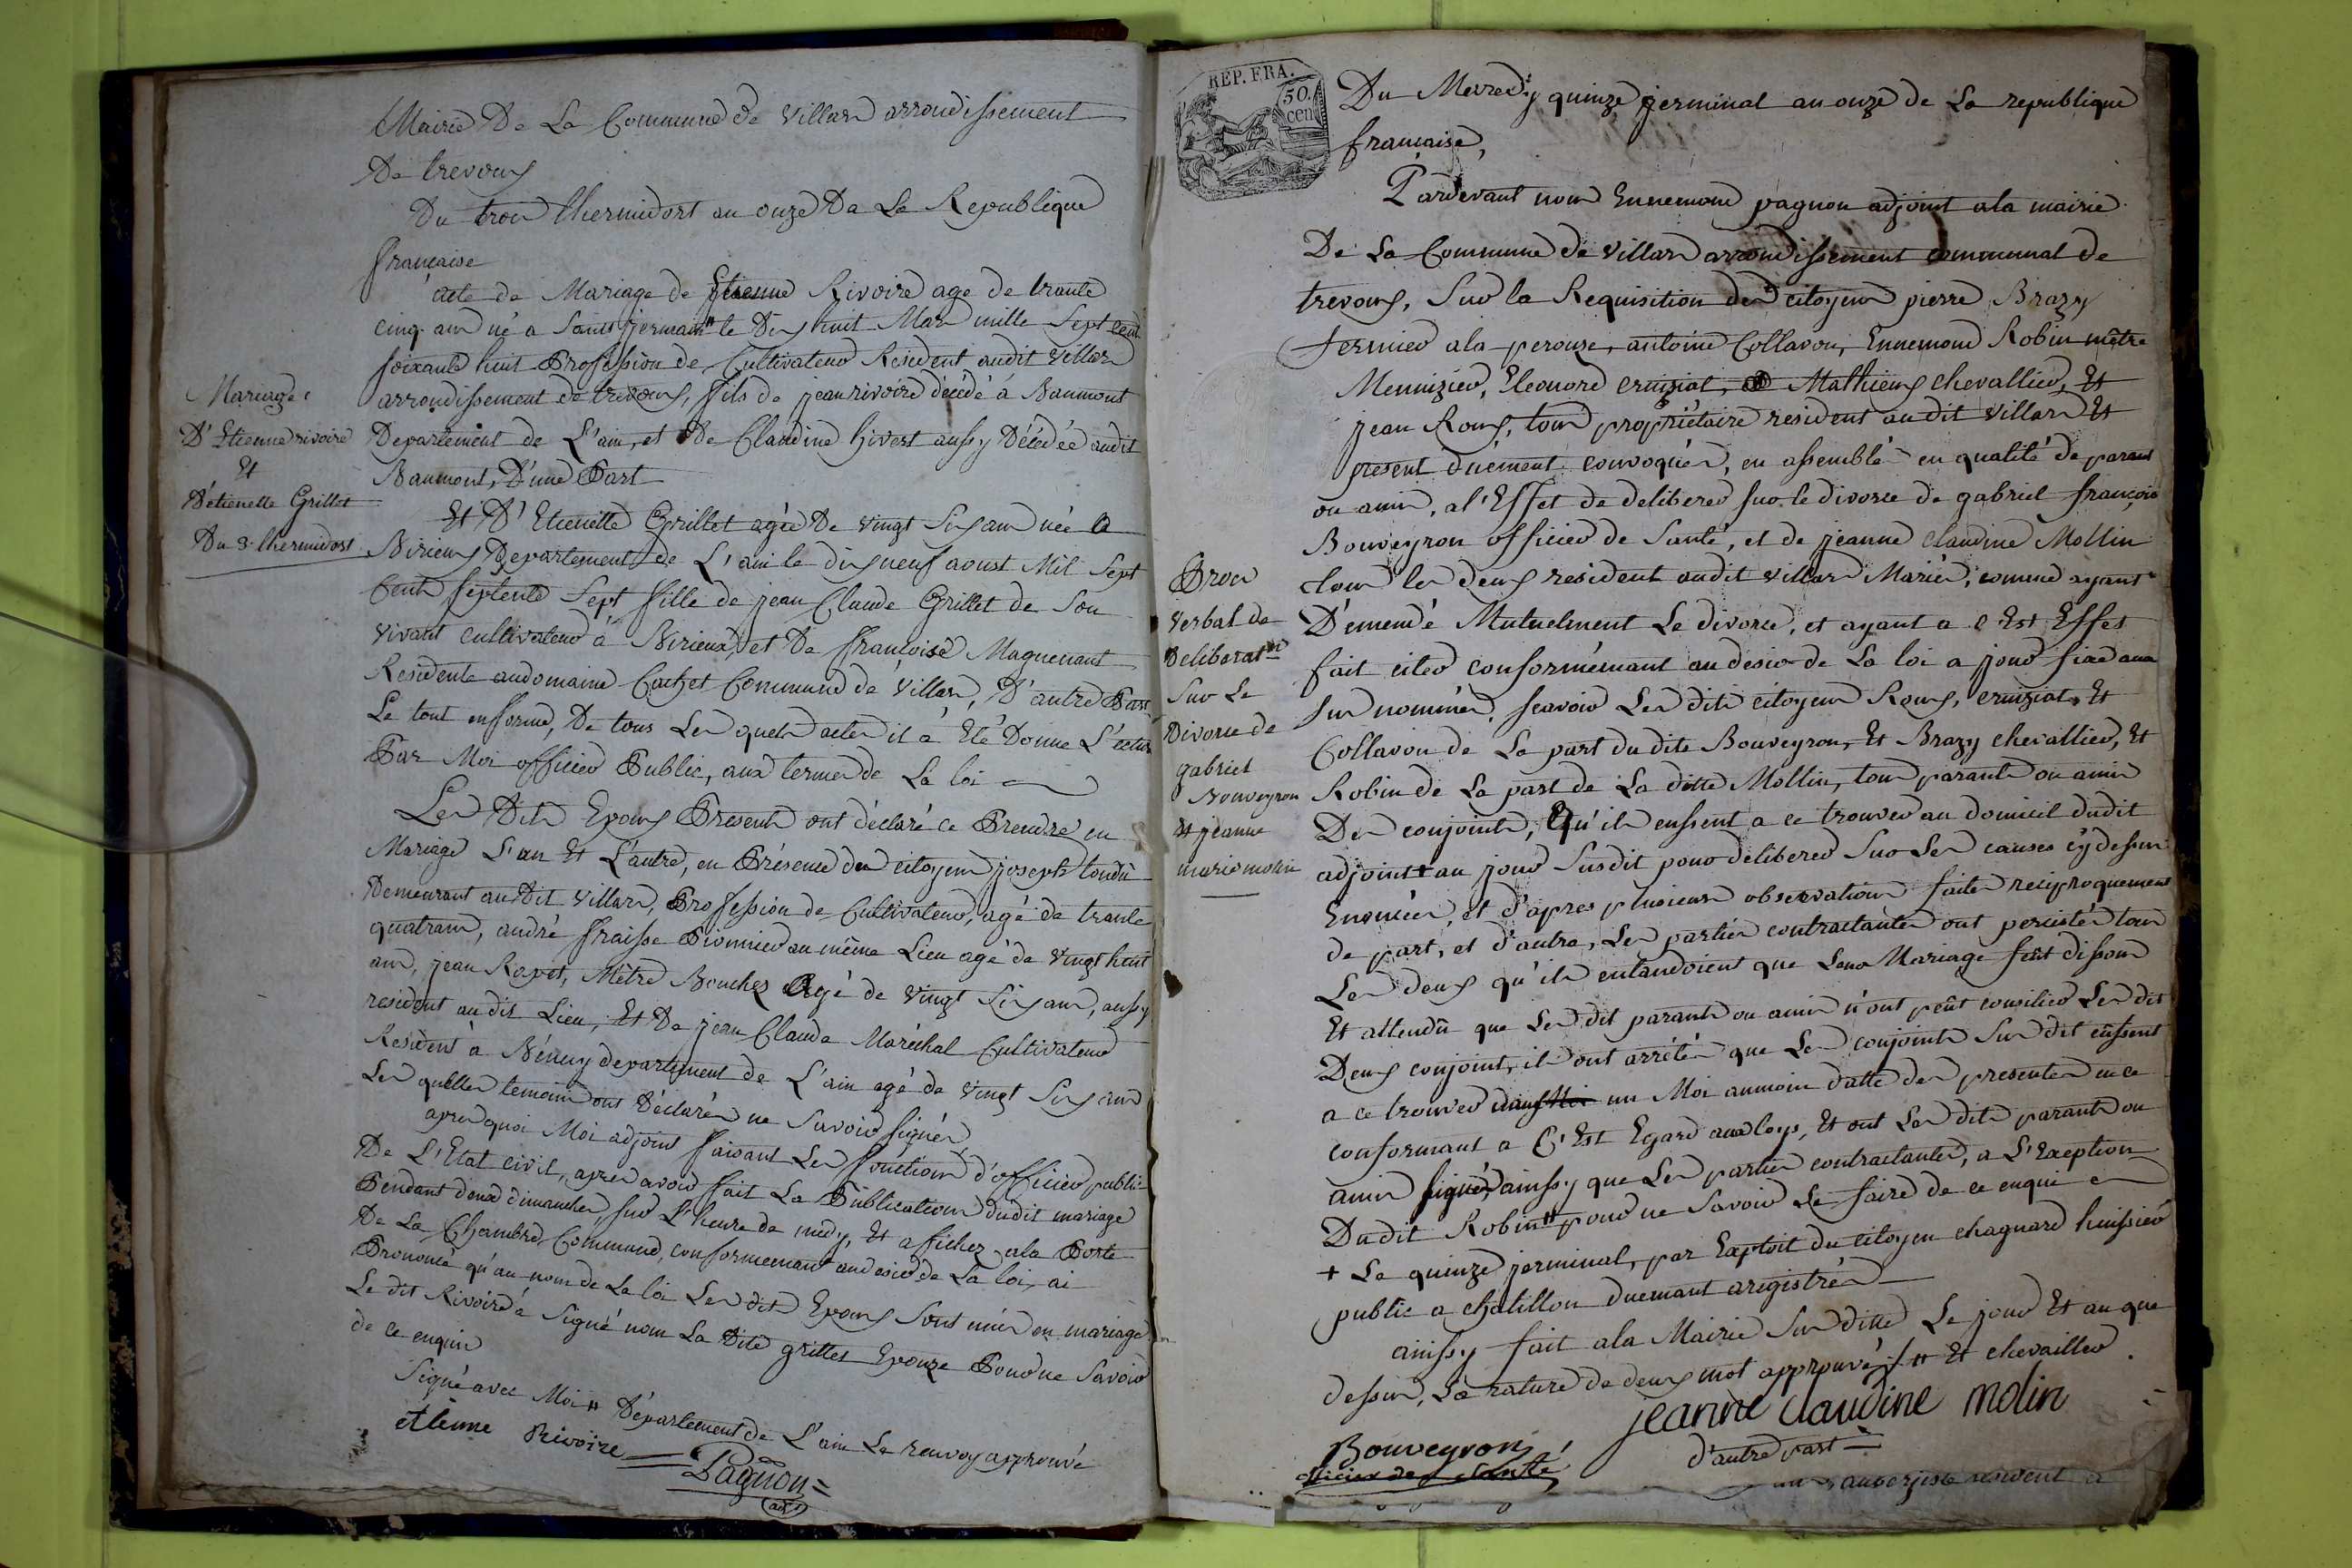 Mairie De La Commune de Villars arrondissement
De trevoux
Du trois thermidort an onze De La Republique
française
acte de Mariage de Etienne Rivoire age de trante
cinq ans né a Saint jermain # le Dix huit Mars mille Sept cent
soixante huit Profession de Cultivateur Resident audit Villars
arrondissement de trevoux, fils de jean rivoire décédé à Baumont
Departement de L'ain, et De Claudine hivert aussy Décédée audit
Baumont, D'une Part
Mariage
D'Etienne rivoire
Et
D'etienette Grillet
Du 3 thermidort
Et D'Etienette Grillet agée De vingt Six ans née a
Birieux Departement de L'ain le dix neuf aoust Mil Sept
Cent septente Sept fille de jean Claude Grillet de Son
vivant cultivateur à Birieux, et De françoise Maguenant
Residente audomaine Cachet Commune de Villars, D'autre Part
Le tout enforme, De tous Les quels actes il à Eté Donné L'ecture
Par Moi officier Public, aux termes de La loi
Les Dits Epoux Presents ont déclaré ce Prendre en
Mariage L'un Et L'autre, en Présence des citoyens joseph tondu
Demeurant audit Villars, Profession de Cultivateur, agé de trante
quatrans, andré fraisse Pionnier au même Lieu agé de vingt huit
ans, jean Rapet, Mêtre Boucher Agé de vingt Six ans, aussy
resident audit Lieu, Et De jean Claude Maréchal Cultivateur
Resident à Béney departement de L'ain agé de vingt Six ans
Les quelles temoins ont Déclarés ne Savoir signér
apres quoi Moi adjoint faisant Les fonctions d'officier public
De L'Etat civil, apres avoir fait La Publication dudit mariage
Pendant deux dimanches, sur L'heure de midy, Et afichez ala Porte
De La Chambre Commune, conformement audesir de La loi, ai
Prononcé qu'au nom de La loi Les dits Epoux Sont unis en mariage
Le dit Rivoire à Signé non La Dite grillet Epouze Pour ne Savoir
de ce enquis
Signé avec Moi # Département de L'ain Le renvoy approuvé
etienne Rivoire
Pagnon
adjt
REP. FRA.
50
cen
Du Mercredy quinze jerminal an onze de La republique
française,
Pardevant nous Ennemond pagnon adjoint ala mairie
De La Commune de Villars arrondissement communal de
trevoux, Sur la Requisition des citoyens pierre Brazy
fermier ala perouze, antoine Collavon, Ennemond Robin mêtre
Menuizier, Eleonord cruiziat, Mathieux chevallier, Et
jean Roux, tous propriétaire resident audit Villars Et
present duément convoqués, en assemblé en qualité de parans
ou amis, a l'Effet de deliberer sur le divorce de gabriel françois
Bouveyron officier de Santé, et de jeanne claudine Mollin
tous les deux resident audit villars Mariés, comme ayant
Démendé Mutuelment Le divorce, et ayant a c Est Effet
fait citer conformémant au desir de La loi a jour fixe aux
sur nommés, scavoir Les dits citoyens Roux, cruiziat, Et
Collavon de La part du dite Bouveyron, Et Brazy chevallier, Et
Robin de La part de La ditte Mollin, tous parants ou amis
Des conjoints, Qu'ils eussent a ce trouver au domicil dudit
adjoint + au jour Susdit pour deliberer Sur Les causes cy dessus
Enoncées, et d'apres plusieurs observations faites reciproquement
de part, et d'autre, Les parties contractantes ont persistés tous
Les deux qu'ils entandoient que Leur Mariage fût dissous
Et attendû que Les dit parants ou amis n'ont peût consilier Les dit
Deux conjoint, ils ont arrétés que Les conjoints Sus dit eussent
a ce trouver dans un Moi aumoins datte des presentes en ce
conformant a C'Est Egard aux loys, Et ont Les dits parants ou
amis signé, ainssy que Les parties contractantes, a L'Exeption
Dudit Robin # pour ne Savoir Le faire de ce enquis
+ Le quinze jerminal, par Exploit du citoyen chagnard huissier
public a chatillon duemant aregistrés
ainssy fait ala Mairie Sus ditte Le jour Et an que
dessus, La rature de deux mot approuvés / # Et chevallier
Proces
verbal de
Deliberat.n
Sur Le
Divorce de
gabriel
Bouveyron
Et jeanne
marie molin
jeanne claudine molin
Bouveyron
officier de Santé
d'autre part
aubergiste resident a